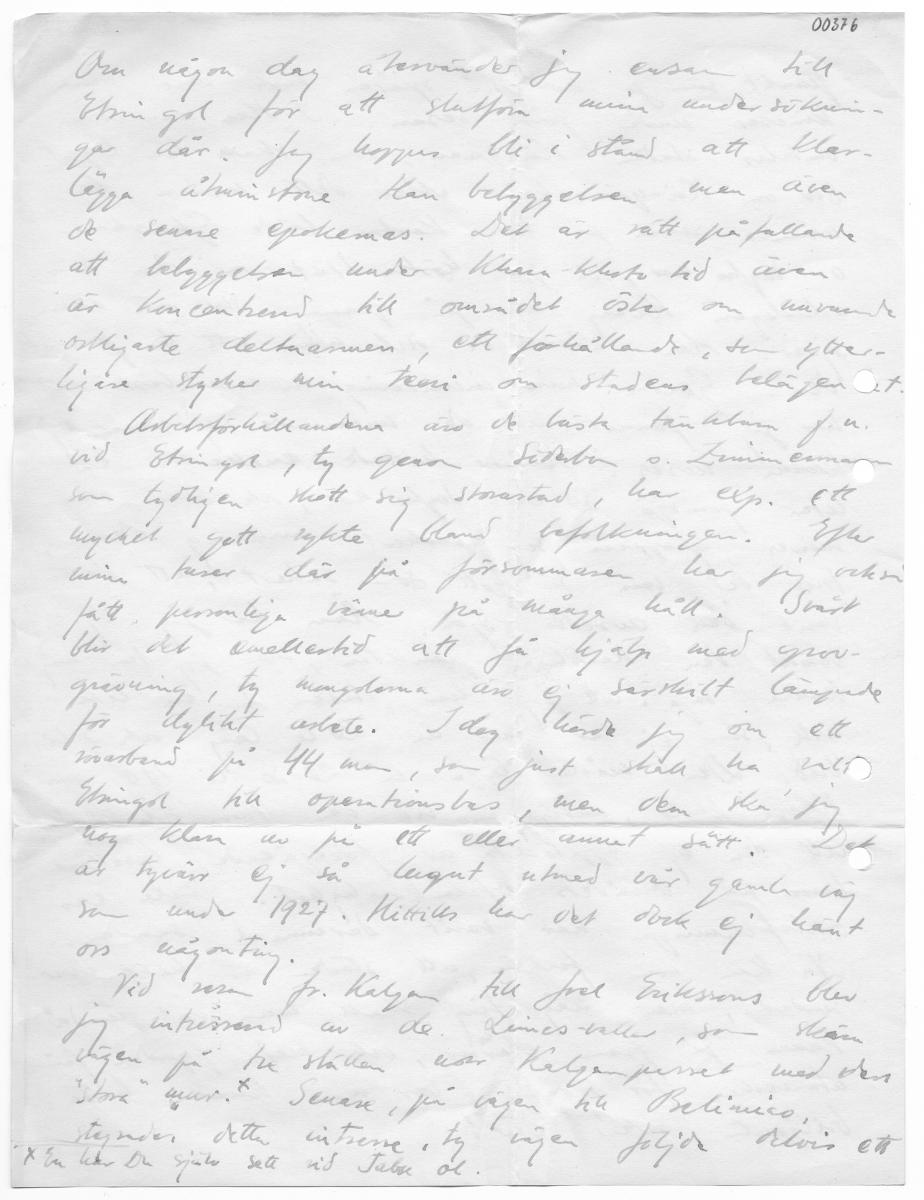 00376
Om någon dag återvänder jag ensam till
Etsingol för att slutföra mina undersöknin-
gar där. Jag hoppas bli i stånd att klar-
lägga åtminstone Han bebyggelsen men även
de senare epokernas. Det är rätt påfallande
att bebyggelsen under Khara-khoto tid även
är koncentrerad till området öster om nuvarande
ostligaste deltaarmen, ett förhållande, som ytter-
ligare styrker min teori om stadens belägenhet.
Arbetsförhållandena äro de bästa tänkbara f.n.
vid Etsingol, ty genom Söderbom o. Zimmermann
som tydligen skött sig storartad, har exp. ett
mycket gott rykte bland befolkningen. Efter
mina resor där på försommaren har jag också
fått personliga vänner på många håll. Svårt
blir det emellertid att få hjälp med grov-
grävning, ty mongolerna äro ej särskilt lämpade
för dylikt arbete. Idag hörde jag om ett
rövarband på 44 man, som just skall ha valt
Etsingol till operationsbas, men dem ska' jag
nog klara av på ett eller annat sätt. Det
är tyvärr ej så lugnt utmed vår gamla väg
som under 1927. Hittills har det dock ej hänt
oss någonting.
Vid resan fr. Kalgan till Joel Erikssons blev
jag intresserad av de Limes-vallar, som skära
vägen på tre ställen norr Kalganpasset med dess
"stora" mur.x Senare, på vägen till Belimiao,
stegrades detta intresse, ty vägen följde delvis ett
x En har Du själv sett vid Tabol ol.